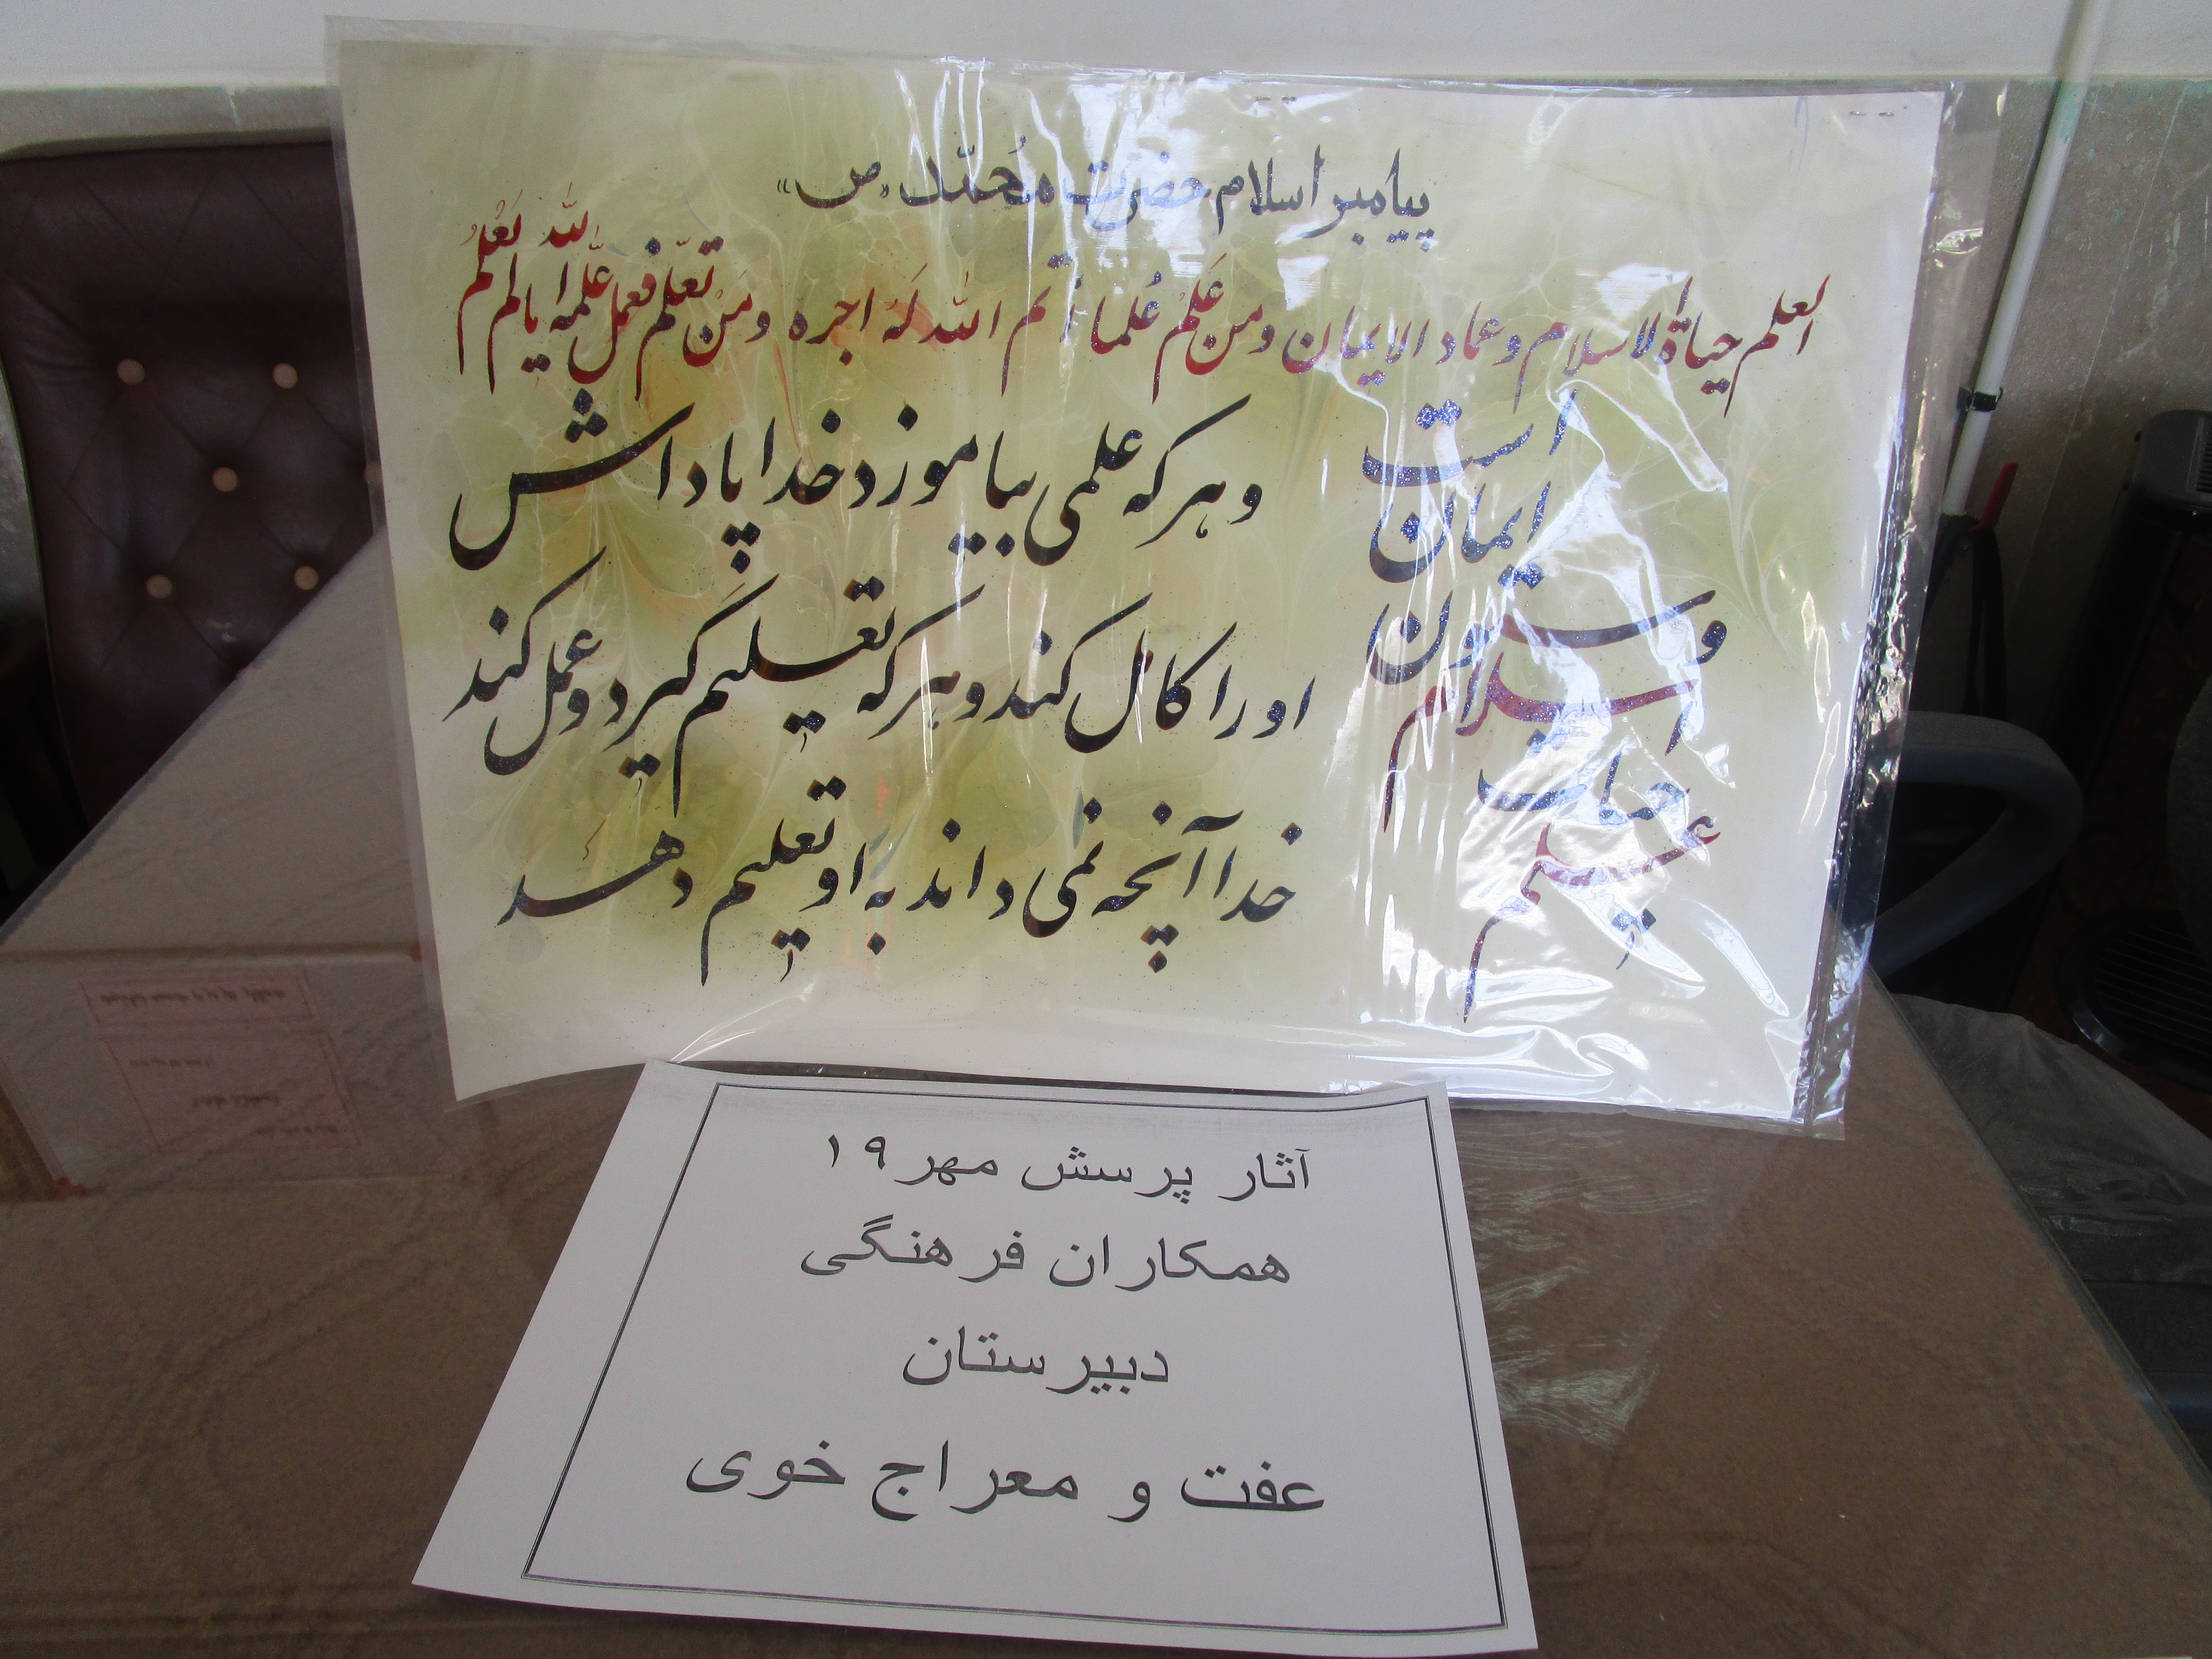 پیامبر اسلام حضرت مُحمّد «ص»
العلم حیاة الاسلام و عماد الایمان و من عَلَّمَ عُلما اَتم الله لَهُ اجره و مَن تعلّم فعمل علّمه الله یالم یَعْلمُ
و هر که علمی بیاموزد خدا پاداش
او را کامل کند و هر که تعلیم گیرد و عمل کند
خدا آنچه نمی داند به او تعلیم دهد
علم
حیات
اسلام
و ستون
ایمان
است
آثار پرسش مهر ۱۹
همکاران فرهنگی
دبیرستان
عفت و معراج خوی